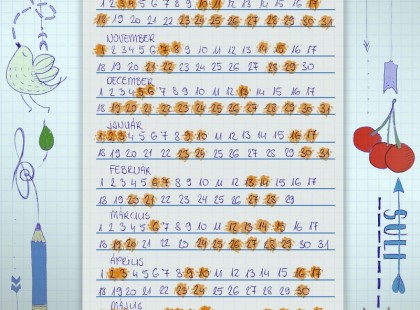 1 2 3 4 5 6 7 8 9 10 11 12 13 14 15 16 17
18 19 20 21 22 23 24 25 26 27 28 29 30 31
NOVEMBER
1 2 3 4 5 6 7 8 9 10 11 12 13 14 15 16 17
18 19 20 21 22 23 24 25 26 27 28 29 30
DECEMBER
1 2 3 4 5 6 7 8 9 10 11 12 13 14 15 16 17
18 19 20 21 22 23 24 25 26 27 28 29 30 31
JANUÁR
1 2 3 4 5 6 7 8 9 10 11 12 13 14 15 16 17
18 19 20 21 22 23 24 25 26 27 28 29 30 31
FEBRUÁR
1 2 3 4 5 6 7 8 9 10 11 12 13 14 15 16 17
18 19 20 21 22 23 24 25 26 27 28 29
MÁRCIUS
1 2 3 4 5 6 7 8 9 10 11 12 13 14 15 16 17
18 19 20 21 22 23 24 25 26 27 28 29 30 31
ÁPRILIS
1 2 3 4 5 6 7 8 9 10 11 12 13 14 15 16 17
18 19 20 21 22 23 24 25 26 27 28 29 30
MÁJUS
SULI